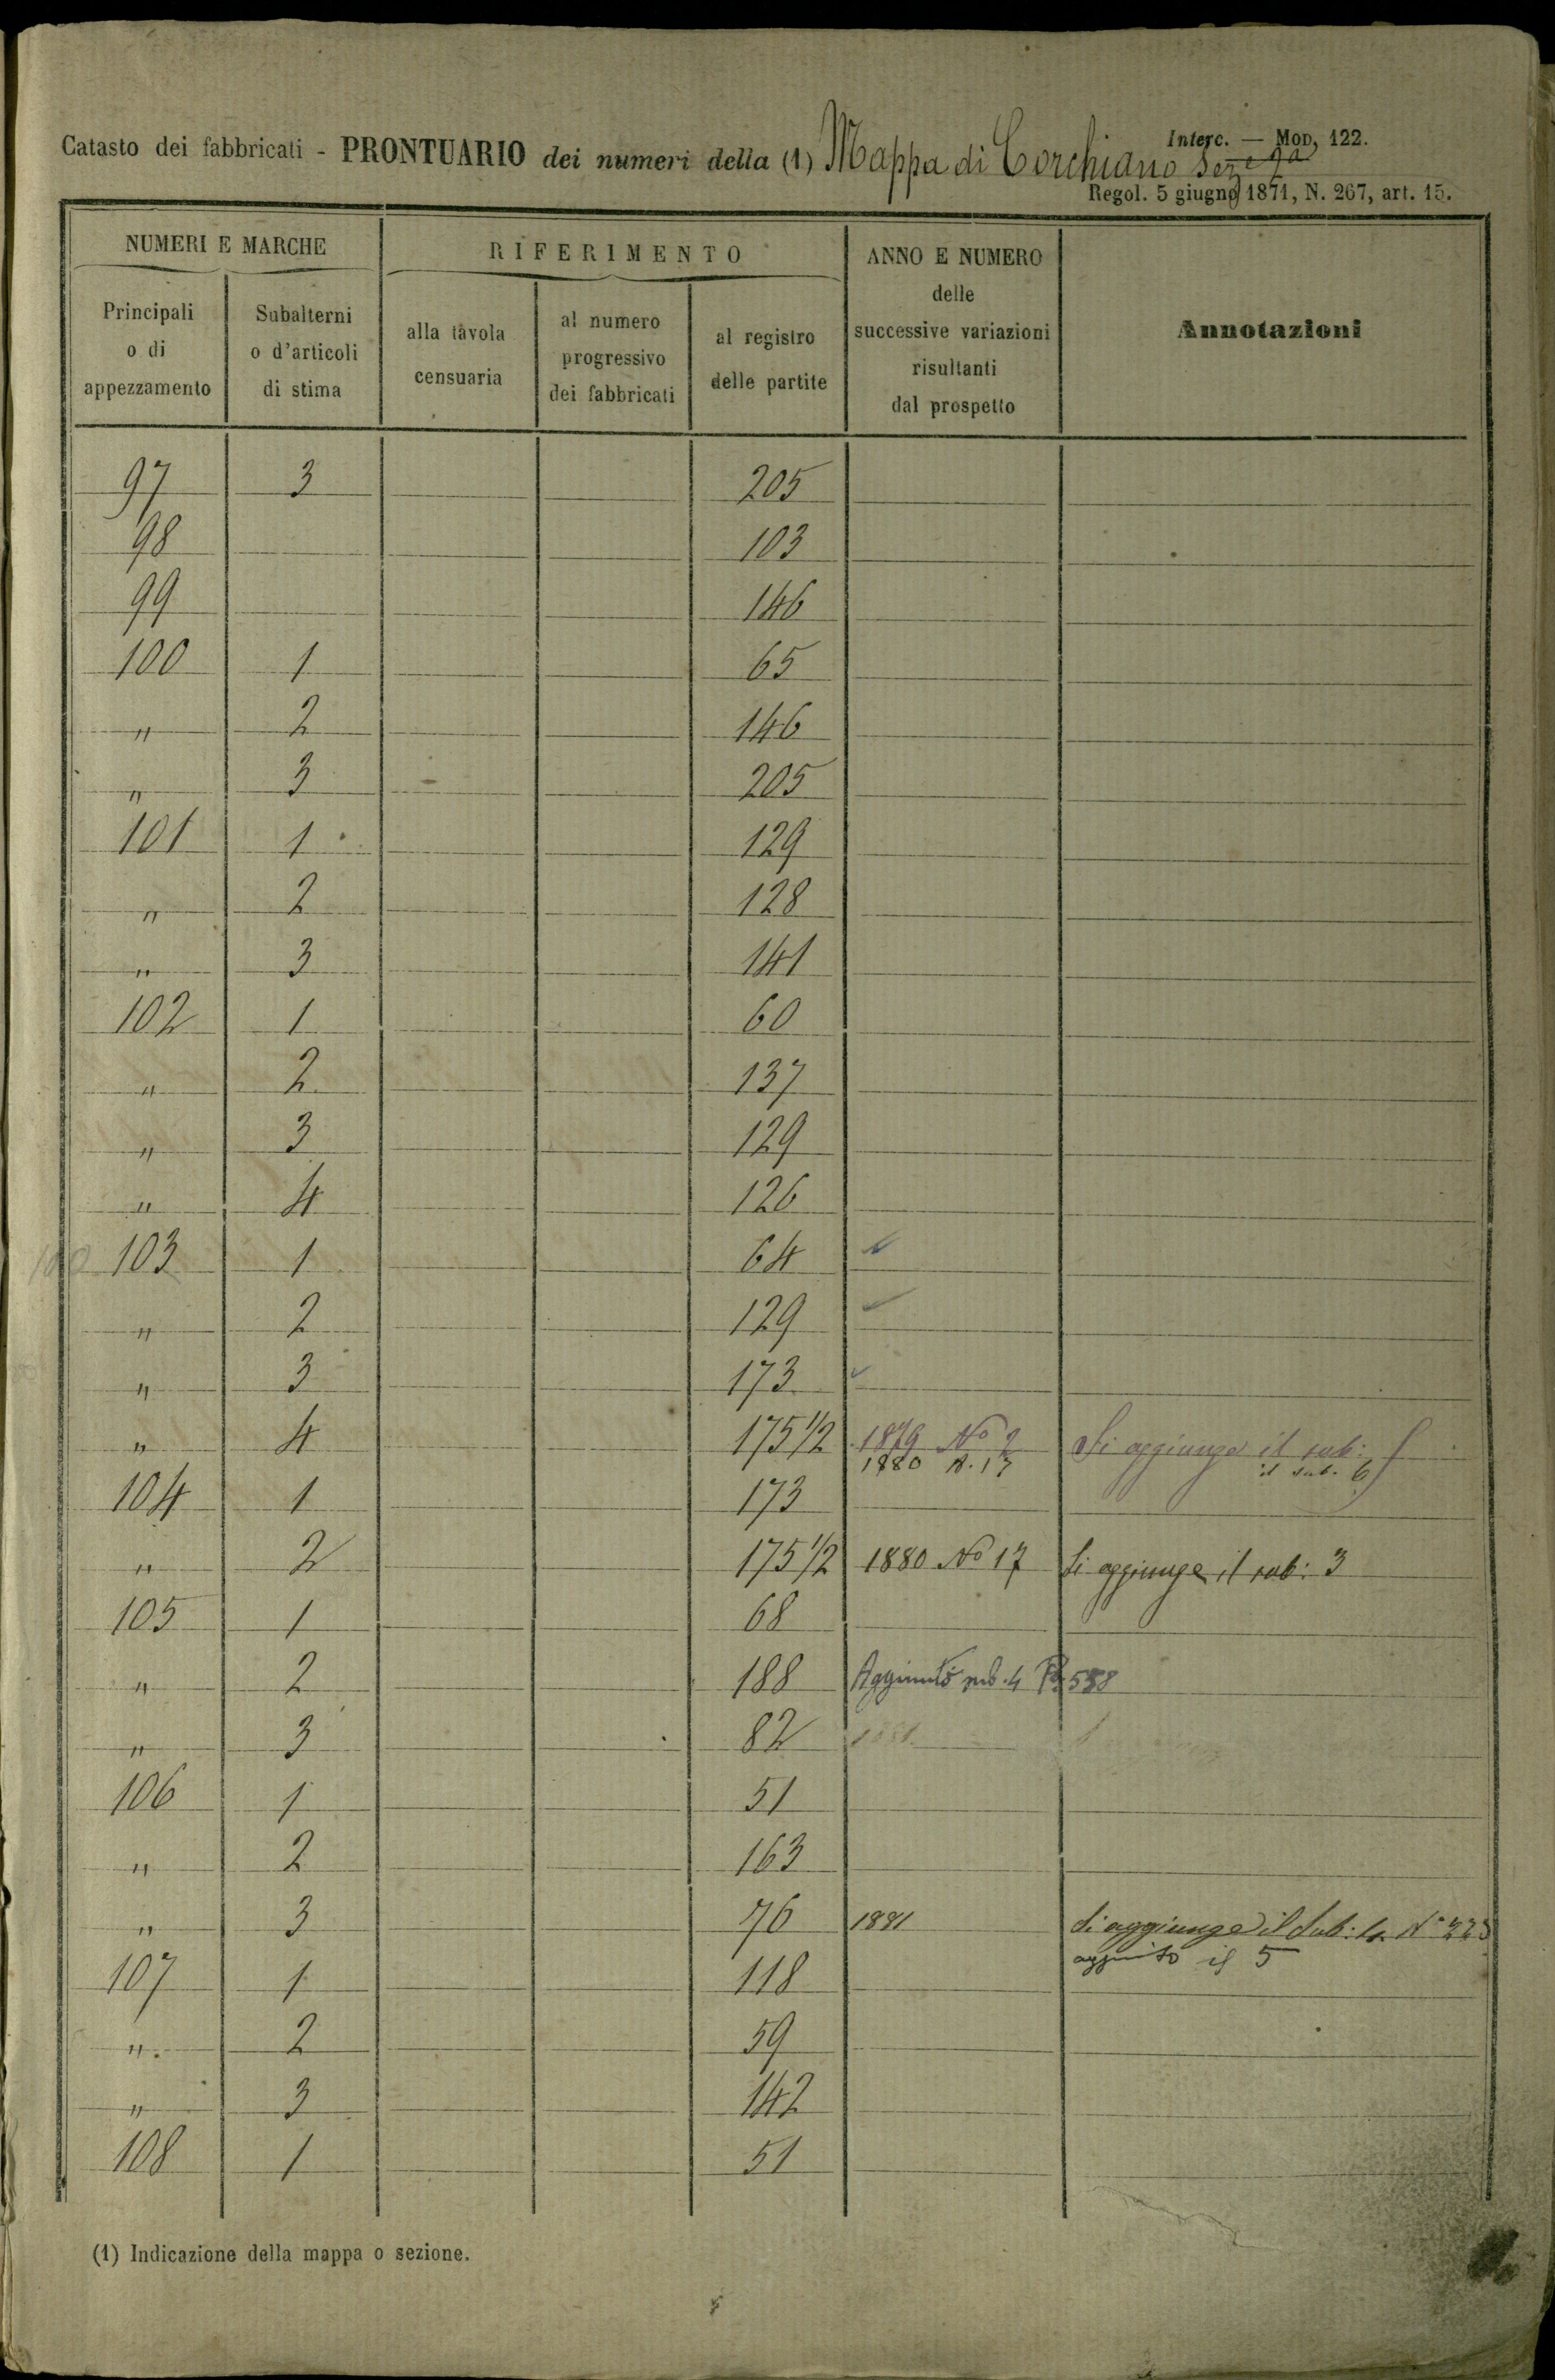 Interc. — Mod. 122.
Catasto dei fabbricati - PRONTUARIO dei numeri della (1) Mappa di Corchiano Sez.e 2a
Regol. 5 giugno 1871, N. 267, art. 15.
NUMERI E MARCHE RIFERIMENTO ANNO E NUMERO delle successive variazioni risultanti dal prospetto Annotazioni
Principali o di appezzamento Subalterni o d'articoli di stima alla tavola censuaria al numero progressivo dei fabbricati al registro delle partite
97 3 205
98 103
99 146
100 1 65
" 2 146
" 3 205
101 1 129
" 2 128
" 3 141
102 1 60
" 2 137
" 3 129
" 4 126
103 1 64
" 2 129
" 3 173
" 4 175 1/2 1879 No 2 Si aggiunge il sub:
1880 N. 17 il sub. 6
104 1 173
" 2 175 1/2 1880 No 17 Si aggiunge il sub: 3
105 1 68
" 2 188 Aggiunto sub. 4 558
" 3 82
106 1 51
" 2 163
" 3 76 1881 Si aggiunge il Sub: 4. No
aggiunto il 5
107 1 118
" 2 59
" 3 142
108 1 51
(1) Indicazione della mappa o sezione.